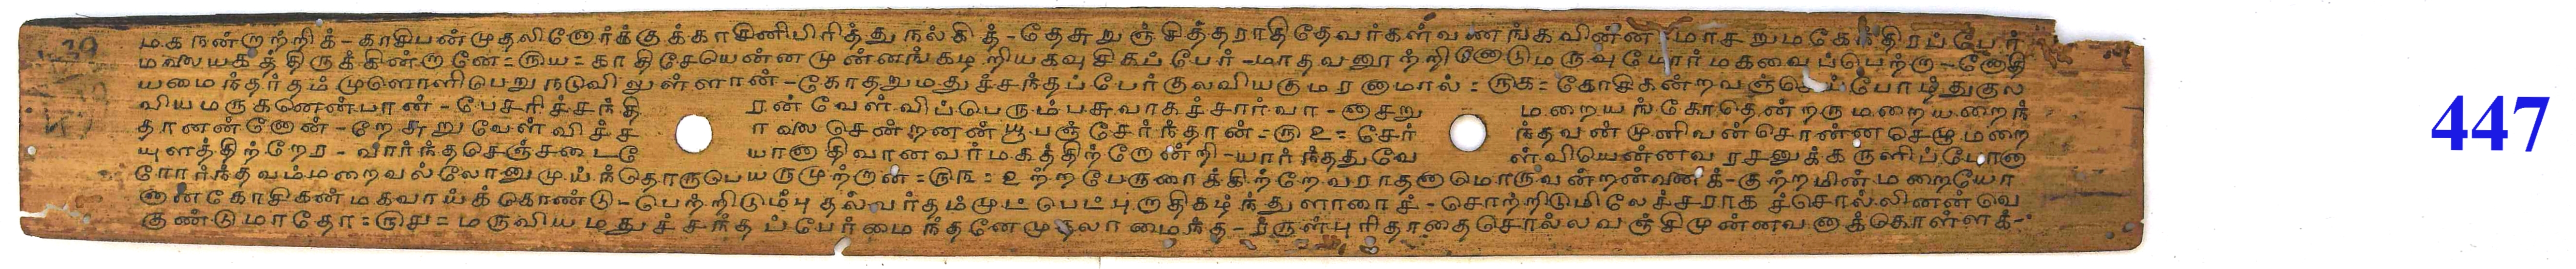 மகநன்றாற்றிக் - காசிபன்முதலினோர்க்குக்காசினிபிரித்து நல்கித் - தேசுறுஞ்சித்தராதிதேவர்கள்வணங்கவின்ன மாசறுமகேந்திரப்பேர்
மலையகத்திருக்கின்றானே = ருய = காதிசேயென்னமுன்னங்கழறியகவுசிகப்பேர் - மாதவனூற்றினோடுமருவுமோர்மகவைப்பெற்று - னோதி
யமைந்தர்தம்முளொளிபெறுநடுவிலுள்ளான் - கோதறுமதுச்சந்தப்பேர்குலவியகுமரனாமால் = ருக = கோசிகன்றவஞ்செய்போழ்துகுல
வியமருகனென்பான் - பேசரிச்சந்தி ரன்வேள்விப்பெரும்பசுவாகச்சார்வா - னாசறு மறையங்கோதென்றருமறையறைந்
தானன்னோன் - றேசுறுவேள்விச்ச ாலைசென்றனன்யூபஞ்சேர்ந்தான் = ருஉ = சேர் ந்தவன்முனிவன்சொன்னசெழுமறை
யுளத்திற்றேர - வார்ந்தசெஞ்சடைடே யானாதிவானவர்மகத்திற்றோன்றி - யார்ந்ததுவே ள்வியென்னவரசனுக்கருளிப்போனா
ரோர்ந்தவம்மறைவல்லோனுமுய்ந்டுதாருபெயருமுற்றான் = ருங = உற்றபேருரைக்கிற்றேவராதனாமொருவன்றன்வணக் - குற்றமின்மறையோ
னானகோசிகன்மகவாய்க்கொண்டு - பெற்றிடும்புதல்வர்தம்முட்பெட்புறாதிகழ்ந்துளாரைச் - சொற்றிடுமிலேச்சராகச்சொல்லினன்வெ
குண்டுமாதோ = ருச = மருவியமதுச்சந்தப்பேர்மைந்தனேமுதலாமைந்த - ரருள்புரிதாதைசொல்லவஞ்சிமுன்னவனாக்கொள்ளக் -
447